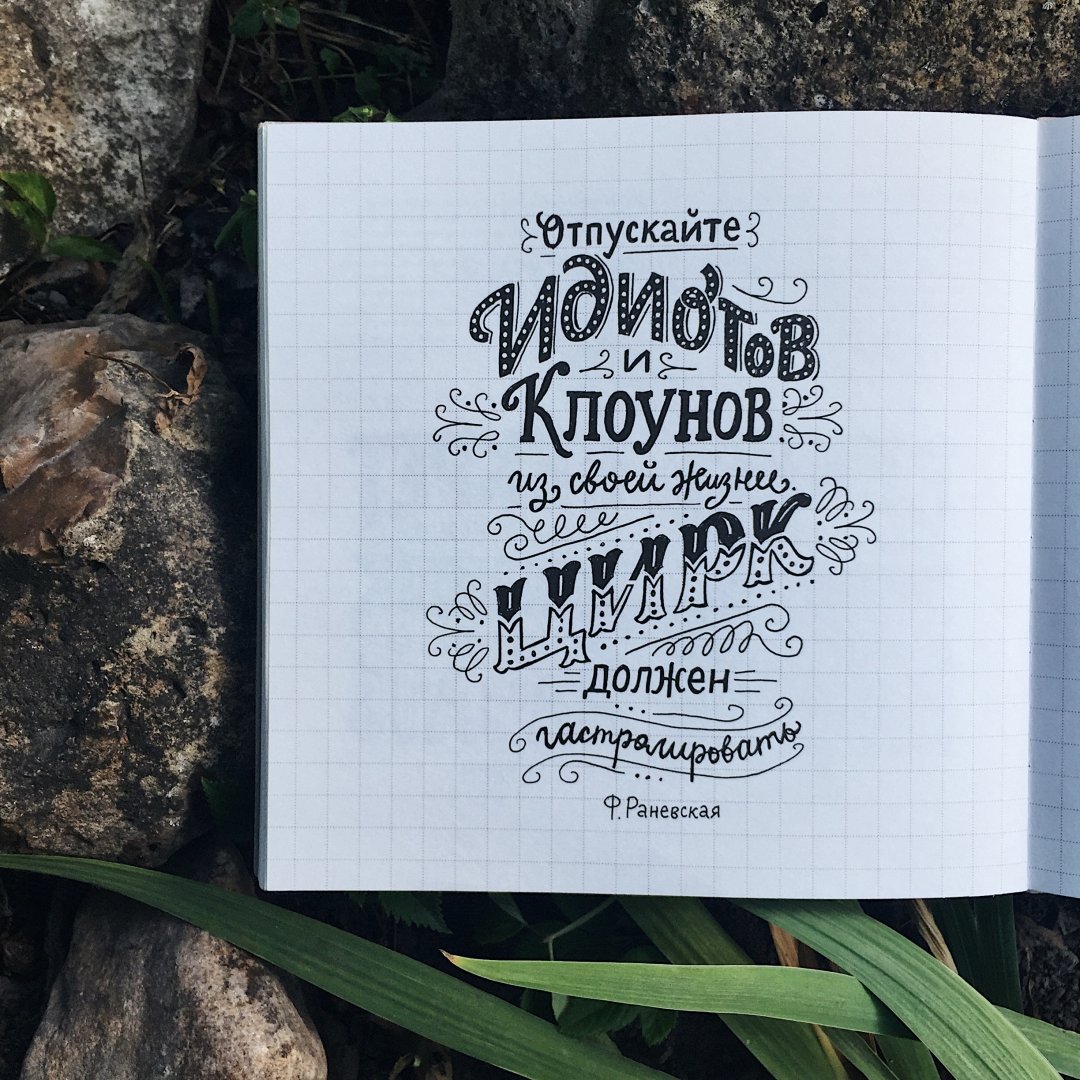 Отпускайте
идиотов
и
Клоунов
из своей жизни.
ЦИРК
должен
гастролировать
Ф. Раневская